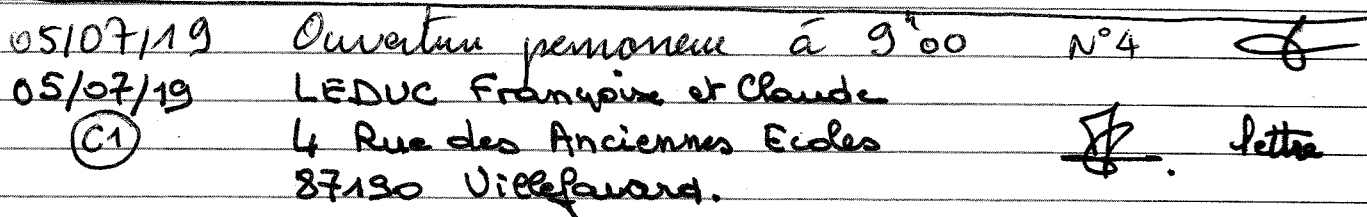 05/07/19 Ouverture permanence à 9h00 N°4
05/07/19 LEDUC Françoise et Claude
C1 4 Rue des Anciennes Ecoles lettre
87190 Villefavard.